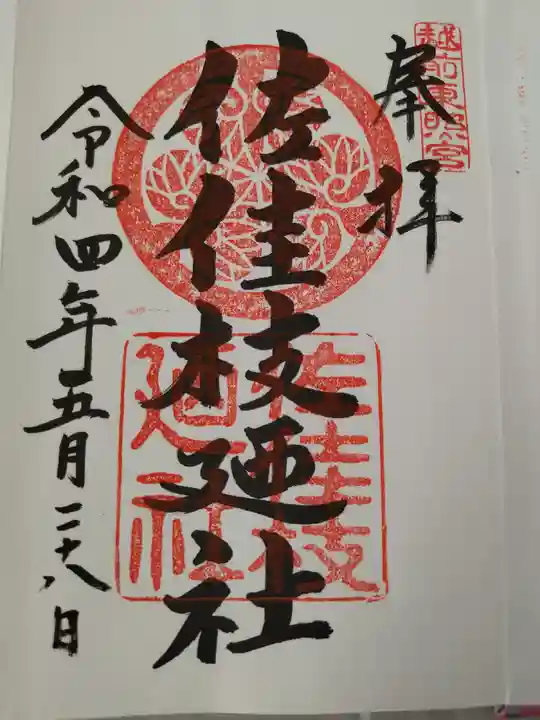 越前東照宮
奉拝
佐佳枝廼社
佐佳枝
廼社
令和四年五月二十八日